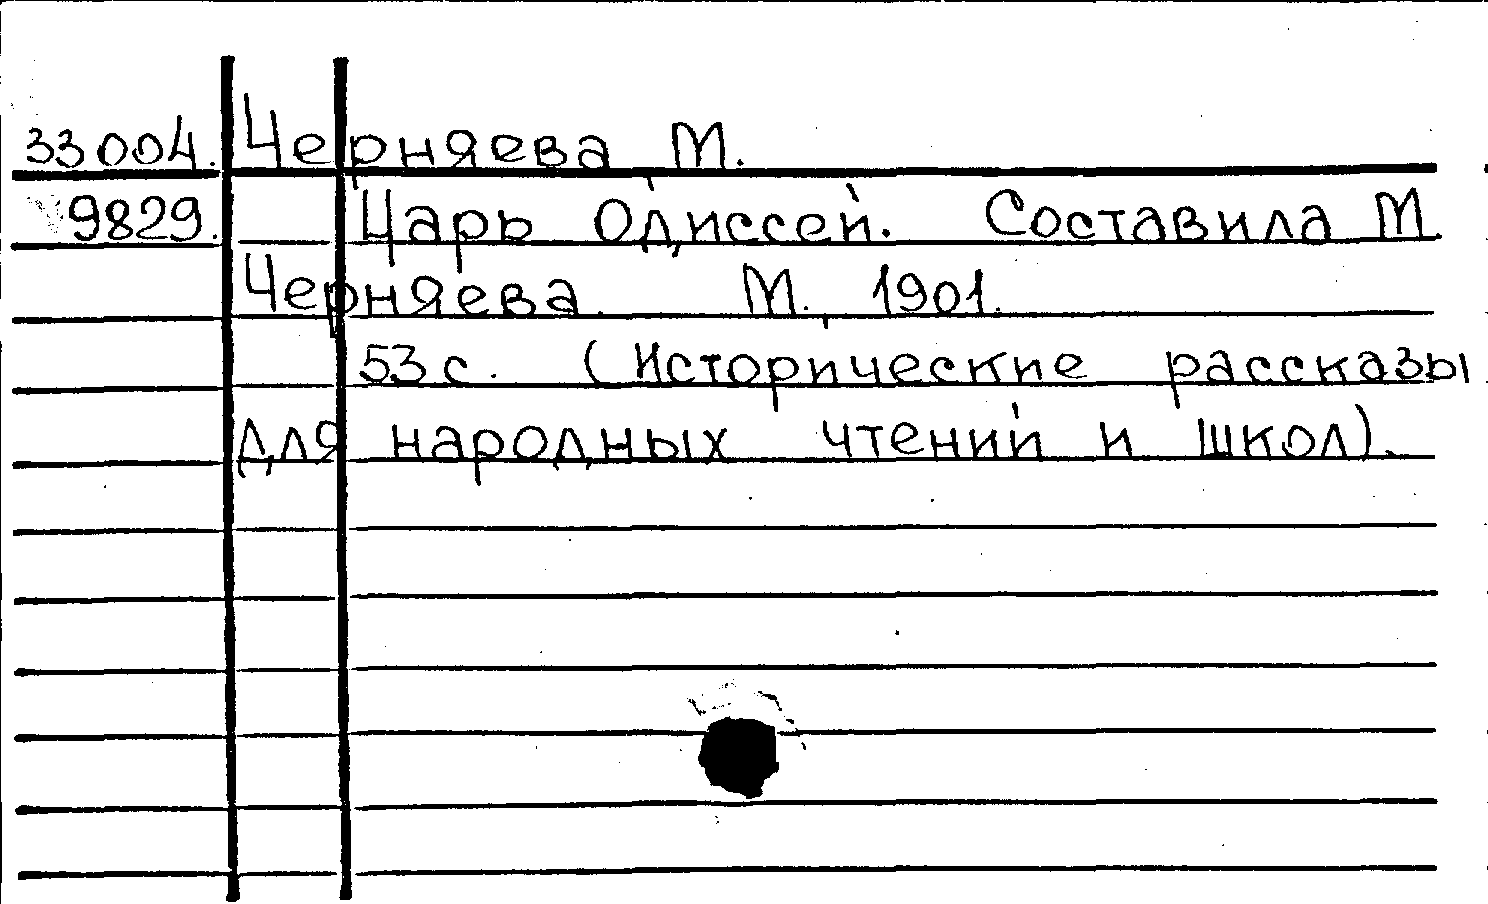 33004. Черняева М.
9829. Царь Одиссей. Составила М.
Черняева. М., 1901.
53 с. (Исторические рассказы
для народных чтений и школ).